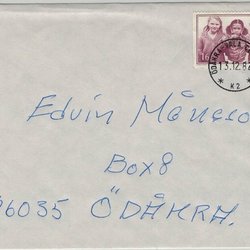 Edvin Månsson
Box 8
26035 ÖDÅKRA.
13.12.82
* K2